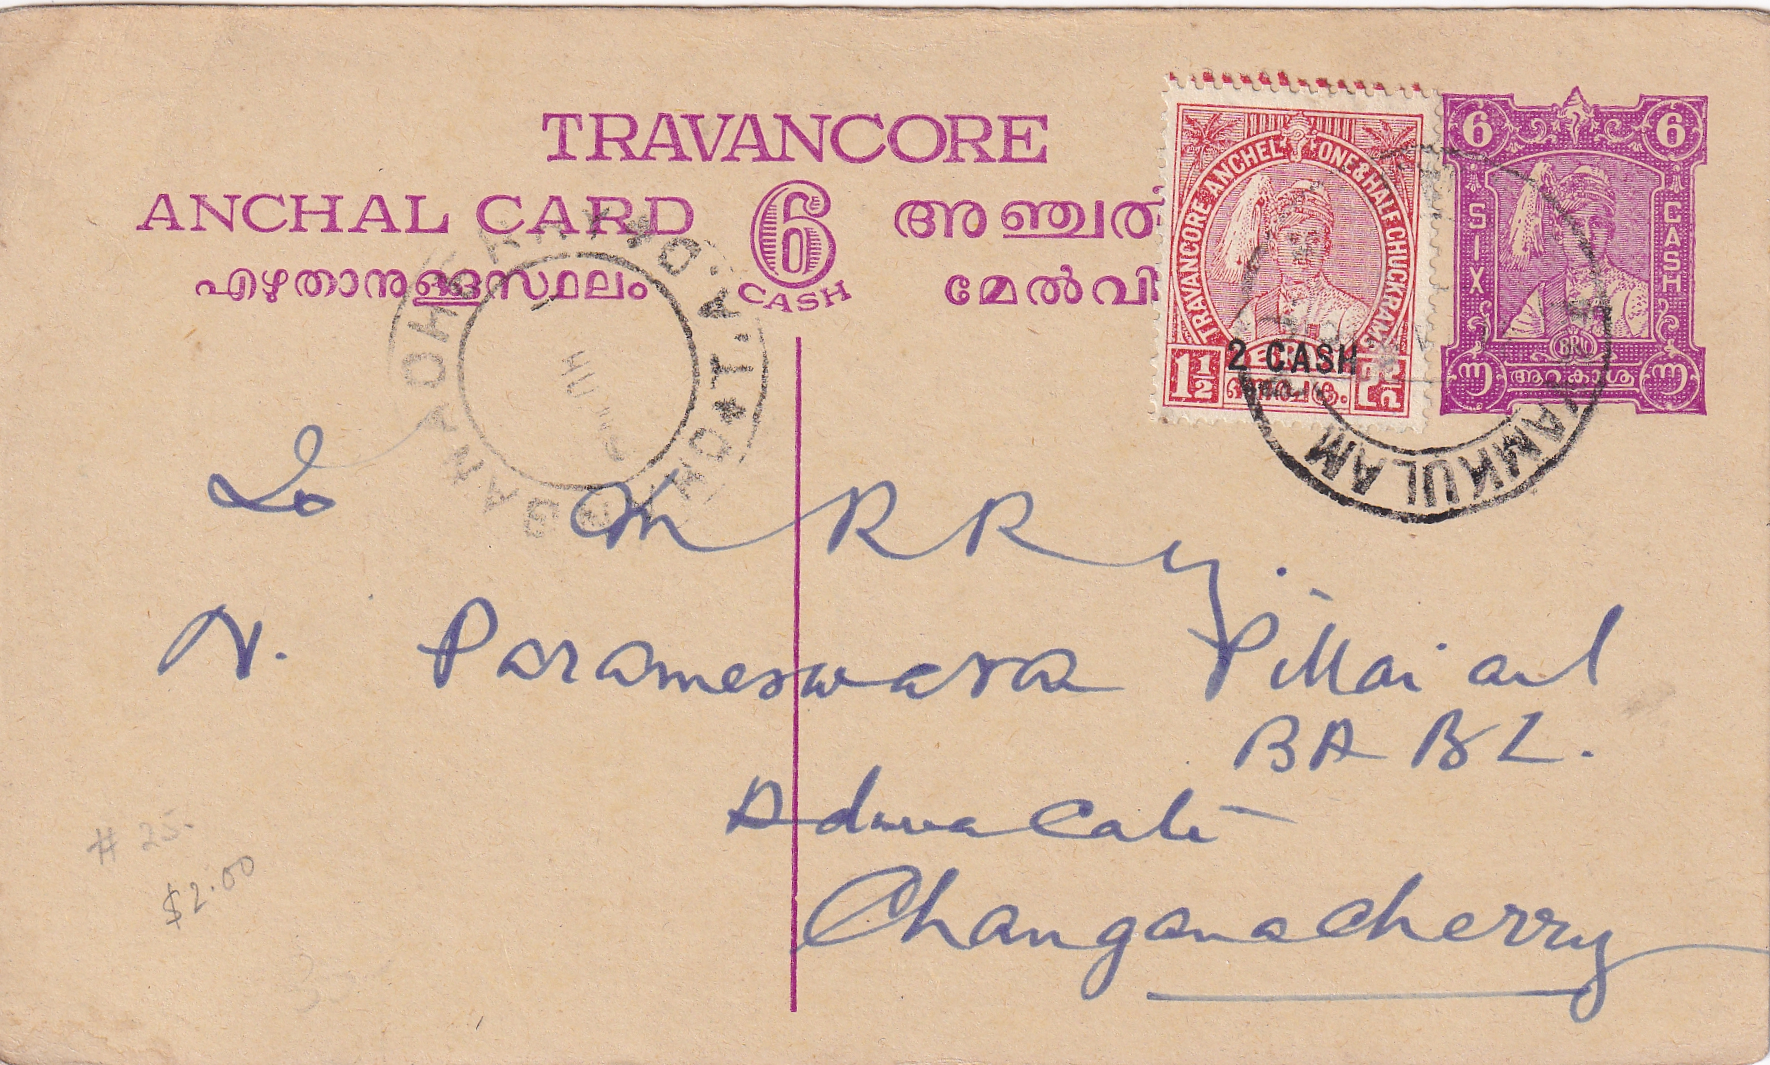 TRAVANCORE
ANCHAL CARD 6 CASH അഞ്ചൽ
എഴുതാനുള്ളസ്ഥലം മേൽവി
TRAVANCORE ANCHEL ONE & HALF CHUCKRAMS
2 CASH
1½
6 6
SIX CASH
BRV
൬ അറകാശ ൬
CHANGANACHERRY
KAYAMKULAM
To M R Ry.
N. Parameswara Pillai avl
BA BL.
Advocate
Changanacherry
# 25.
$2.00